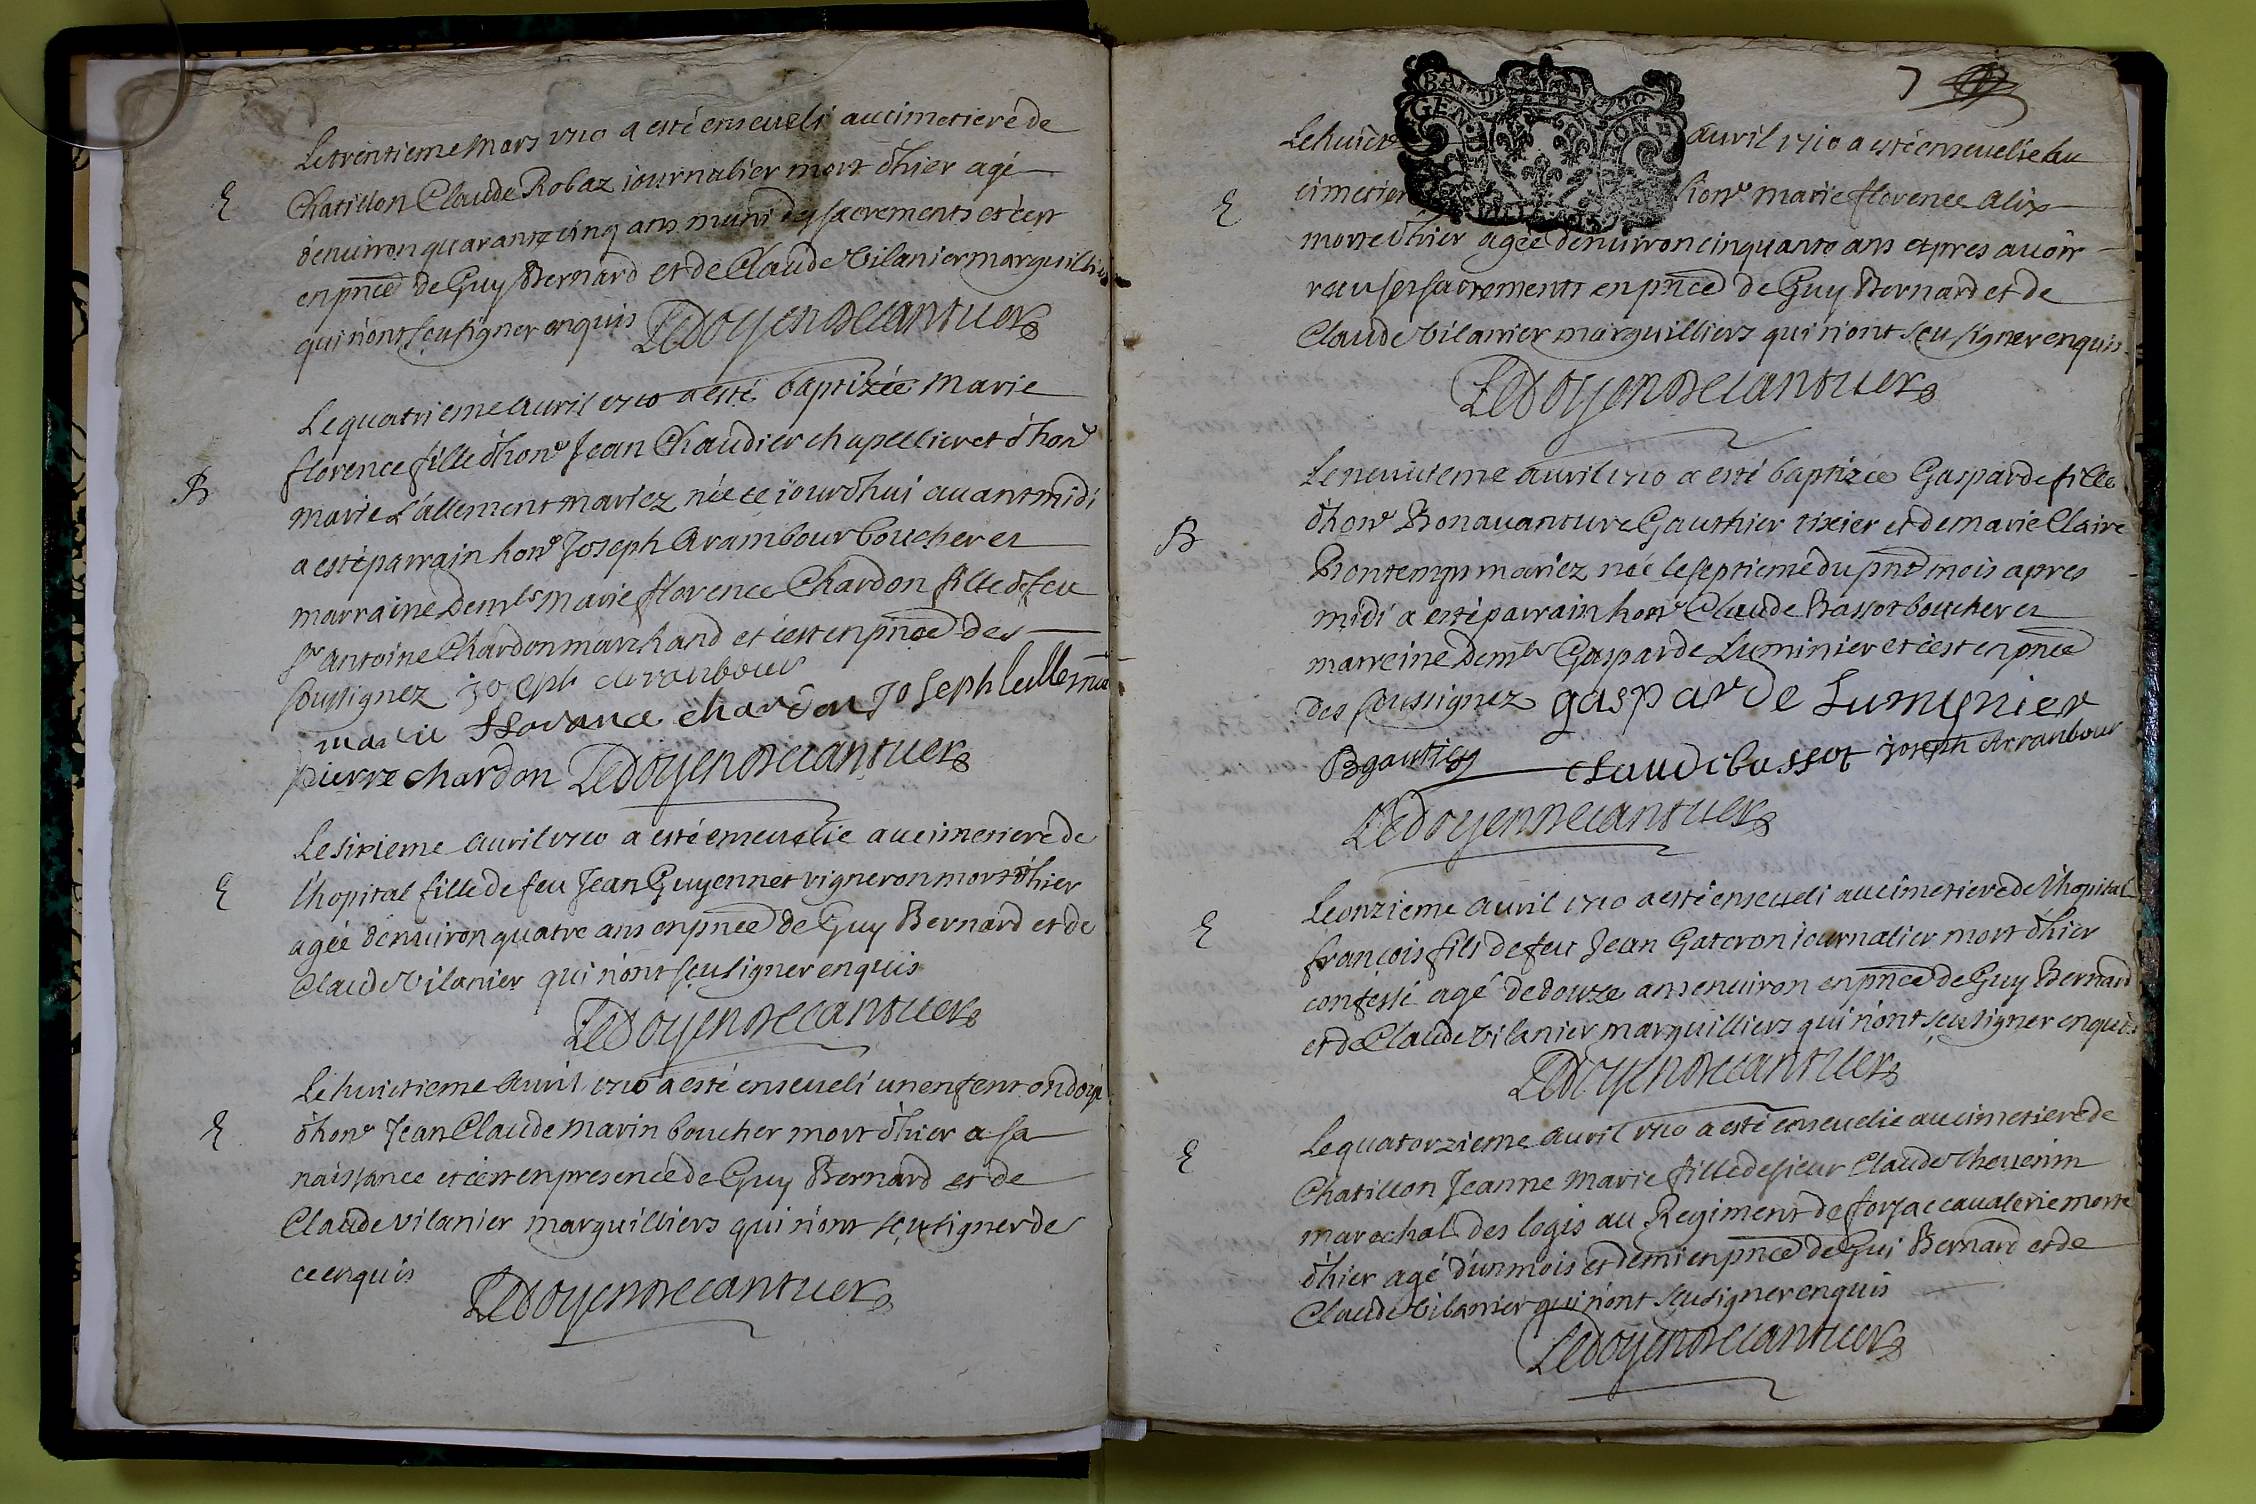 Le trentieme Mars 1710 a esté enseveli au cimetiere de
E
Chatillon Claude Robaz iournalier mort d'hier agé
d'environ quarante cinq ans muni des sacrements et c'est
en pnce de Guy Bernard et de Claude Vilanier marguilliers
qui n'ont sçu signer enquis Ledoyen Decantuers
Le quatrieme Avril 1710 a esté baptizée Marie
florence fille d'hone Jean Chaudier chapellier et d'hone
B
marie L'allement mariez née ce iourd'hui avant midi
a esté parrain hone Joseph Arambour boucher et
marraine Demle Marie florence Chardon fille de feu
sr Antoine Chardon marchand et c'est en pnce des
soussignez joseph arranbour
marie florance chardon Joseph lallemn
pierre chardon Ledoyen Decantuers
Le sixieme Avril 1710 a esté ensevelie au cimetiere de
E
l'hopital fille de feu Jean Guyennet vigneron mort d'hier
agée d'environ quatre ans en pnce de Guy Bernard et de
Claude Vilanier qui n'ont sçu signer enquis
Ledoyen Decantuers
Le huictieme Avril 1710 a esté enseveli un enfent ondoyé
E
d'hone Jean Claude Marin boucher mort d'hier a sa
naissance et c'est en presence de Guy Bernard et de
Claude vilanier marguilliers qui n'ont sçu signer de
ce enquis
Ledoyen Decantuers
7
GEN
Le huict Avril 1710 a esté ensevelie au
E
cimetier lion marie florence Alix
morte d'hier agée d'environ cinquante ans et pres avoir
receu ses sacrements en pnce de Guy Bernard et de
Claude Vilanier marguilliers qui n'ont sçu signer enquis
Ledoyen Decantuers
Le neuvieme Avril 1710 a esté baptizée Gasparde fille
B
d'hone Bonavanture Gauthier tixier et de marie Claire
Prontemps mariez née le septieme du pnt mois apres
midi a esté parrain hone Claude Bassot boucher et
marreine Demle Gasparde Luminier et c'est en pnce
des soussignez gasparde Lumynier
Bgautier claude bassot joseph Arranbour
Ledoyen Decantuers
Le onzieme Avril 1710 a esté enseveli au cimetiere de l'hopital
E
françois fils de feu Jean Gateron iournalier mort d'hier
confessé agé de douze ans environ en pnce de Guy Bernard
et de Claude Vilanier marguilliers qui n'ont sçu signer enquis
Ledoyen Decantuers
Le quatorzieme Avril 1710 a esté ensevelie au cimetiere de
E
Chatillon Jeanne Marie fille de sieur Claude Thevenin
marechal des logis au Regiment de forsac cavalerie morte
d'hier agé d'un mois et demi en pnce de Gui Bernard et de
Claude Vilanier qui n'ont sçu signer enquis
Ledoyen Decantuers